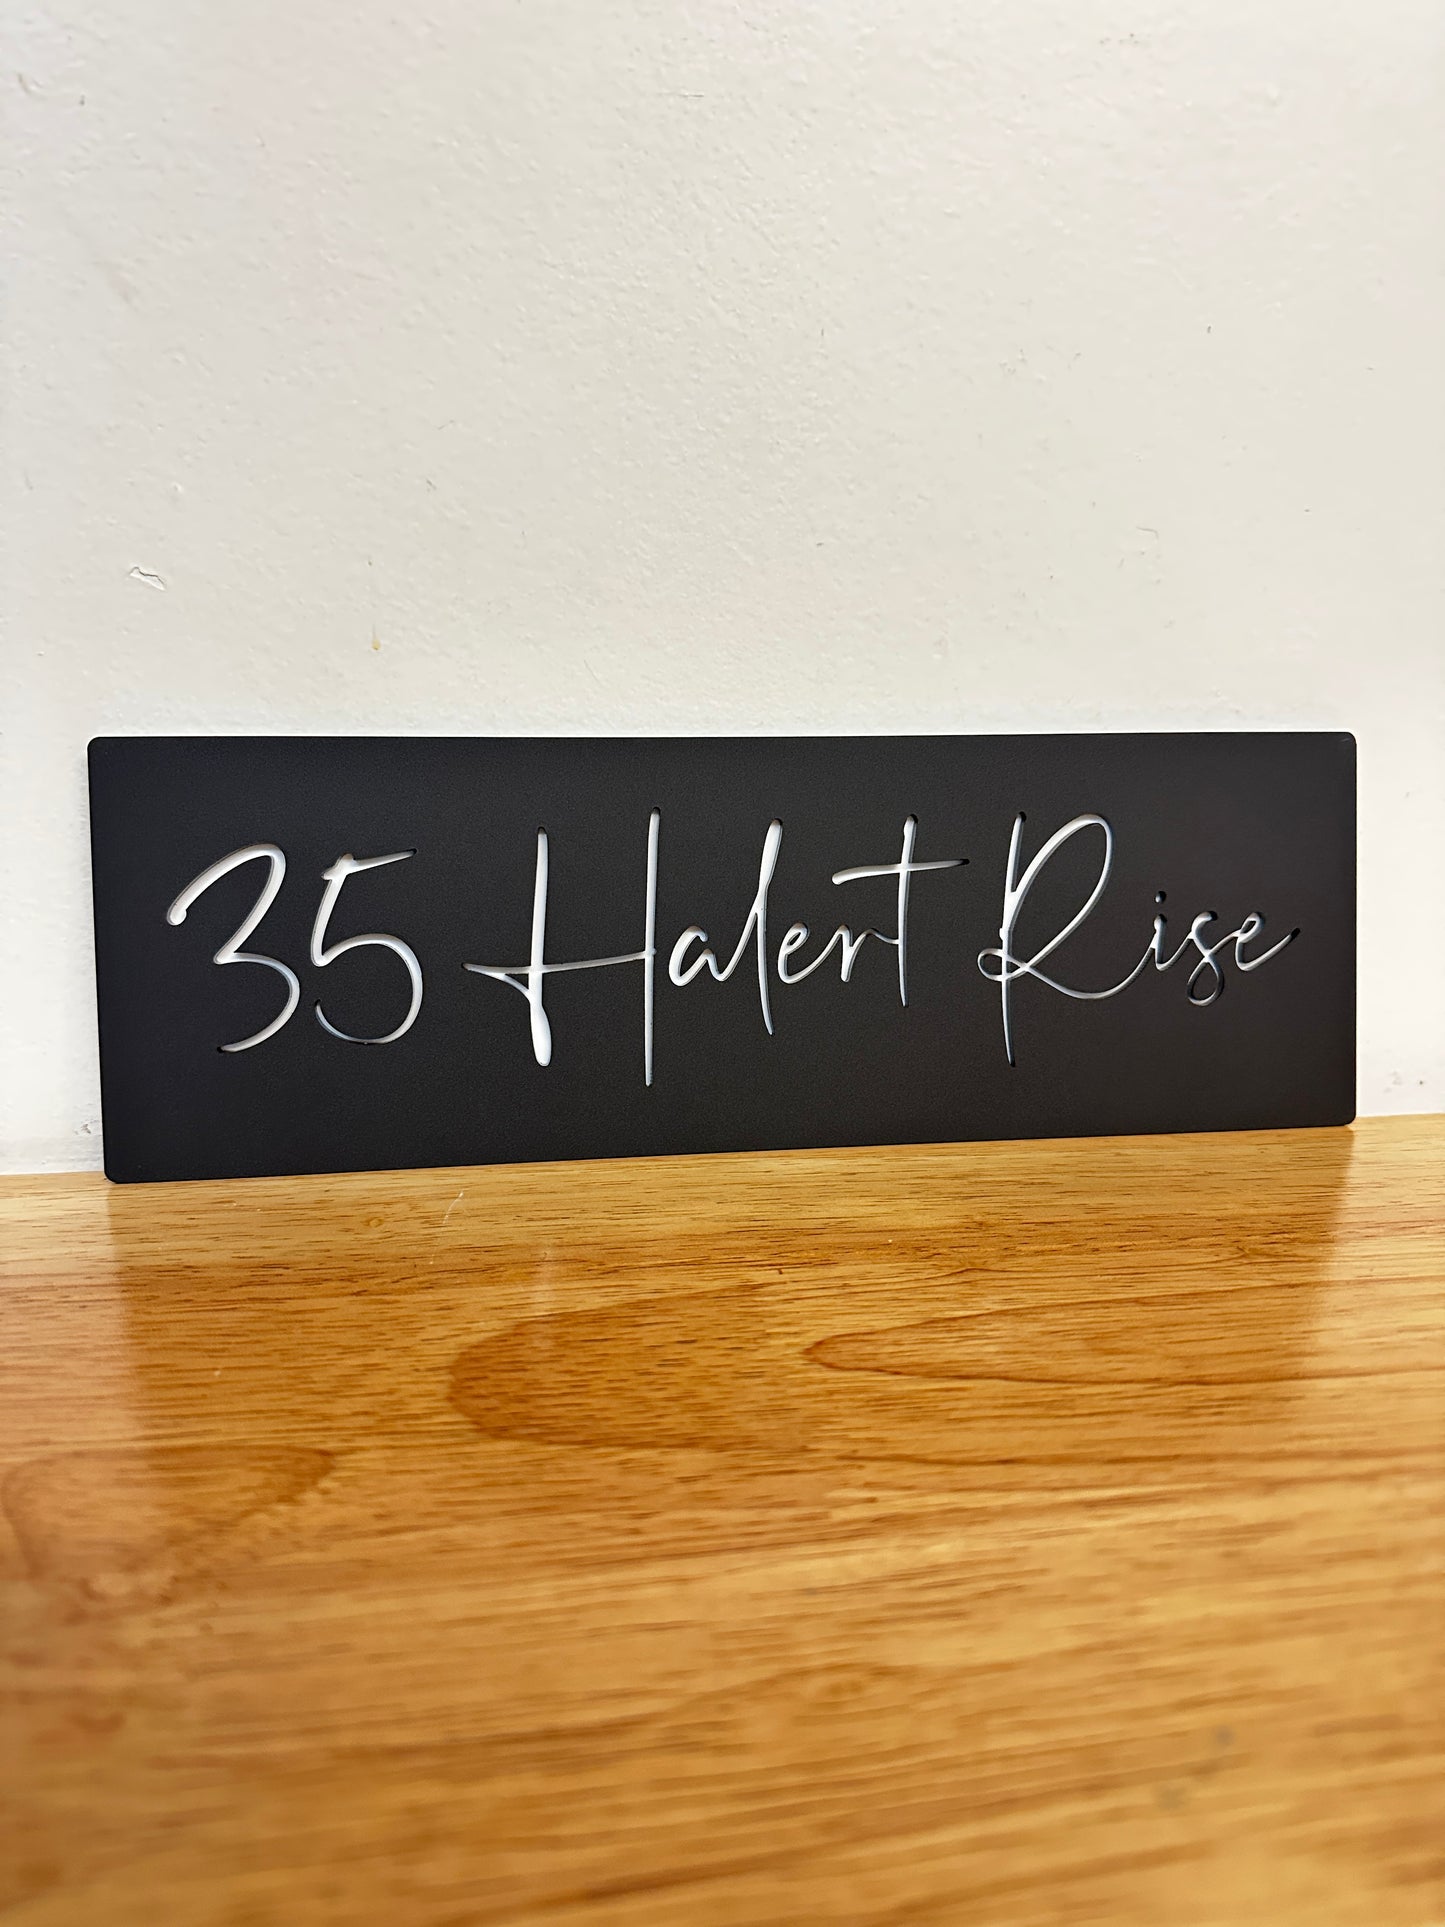 35 Halert Rise